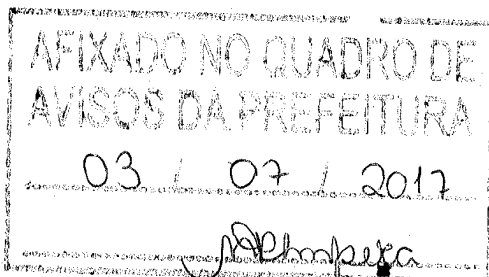 AFIXADO NO QUADRO DE
AVISOS DA PREFEITURA
03 / 07 / 2017